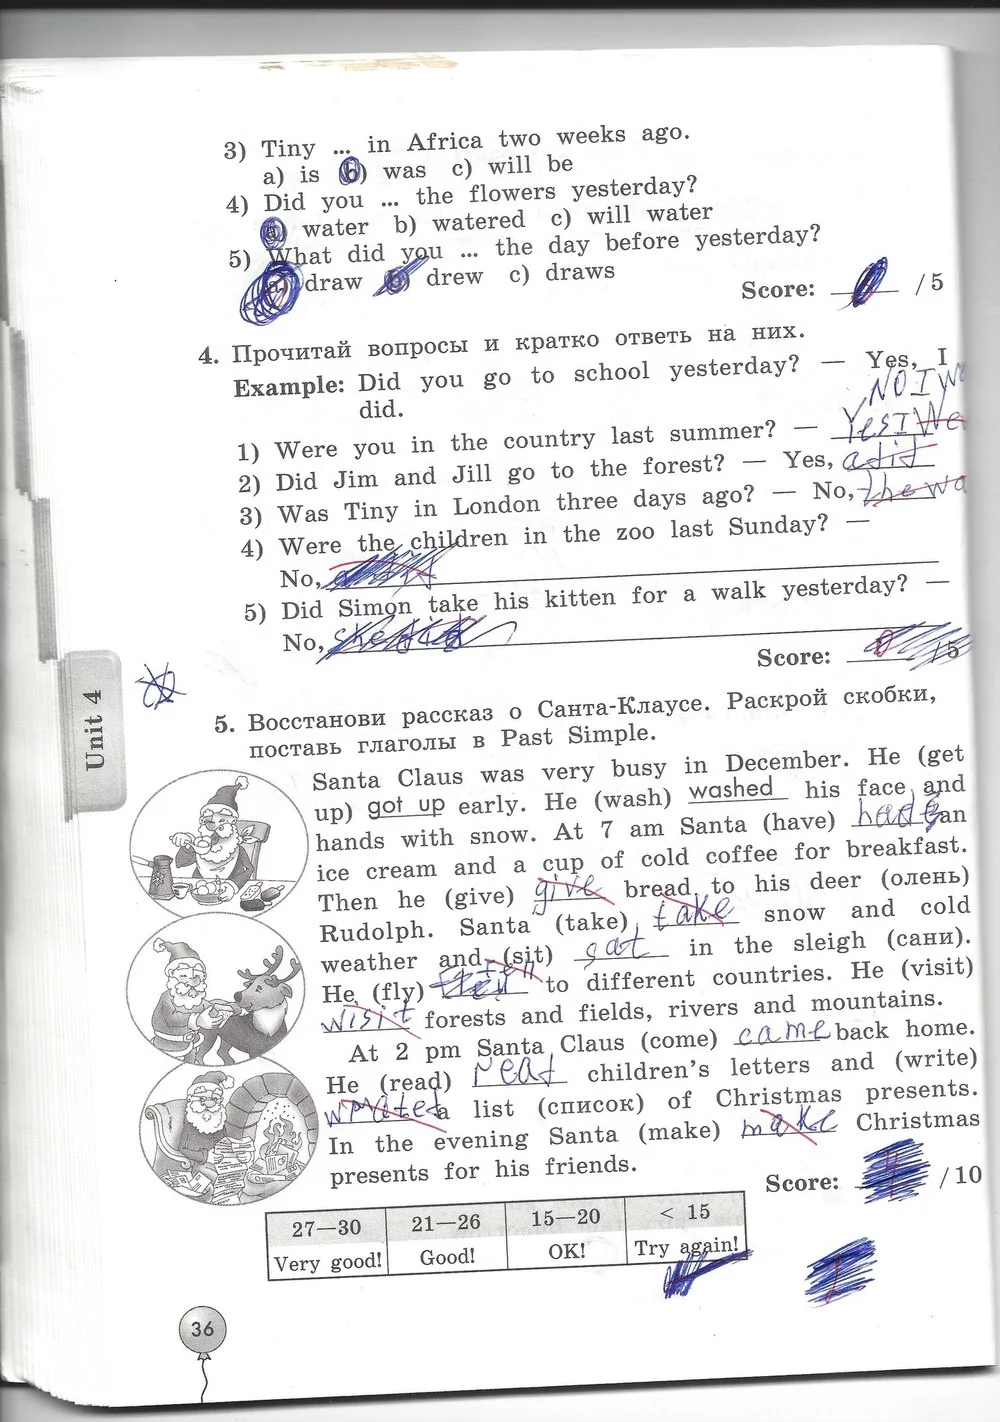 3) Tiny ... in Africa two weeks ago.
a) is b) was c) will be
4) Did you ... the flowers yesterday?
a) water b) watered c) will water
5) What did you ... the day before yesterday?
a) draw b) drew c) draws
Score: /5
4. Прочитай вопросы и кратко ответь на них.
Example: Did you go to school yesterday? — Yes, I
did.
NO I W
1) Were you in the country last summer? — Yes I We
2) Did Jim and Jill go to the forest? — Yes, a did
3) Was Tiny in London three days ago? — No, the wa
4) Were the children in the zoo last Sunday? —
No,
5) Did Simon take his kitten for a walk yesterday? —
No,
Score: 0 /5
Unit 4
5. Восстанови рассказ о Санта-Клаусе. Раскрой скобки,
поставь глаголы в Past Simple.
Santa Claus was very busy in December. He (get
up) got up early. He (wash) washed his face and
hands with snow. At 7 am Santa (have) had an
ice cream and a cup of cold coffee for breakfast.
Then he (give) give bread to his deer (олень)
Rudolph. Santa (take) take snow and cold
weather and (sit) sat in the sleigh (сани).
He (fly) to different countries. He (visit)
wisit forests and fields, rivers and mountains.
At 2 pm Santa Claus (come) came back home.
He (read) read children's letters and (write)
a list (список) of Christmas presents.
In the evening Santa (make) make Christmas
presents for his friends.
Score: /10
27—30 21—26 15—20 < 15
Very good! Good! OK! Try again!
36